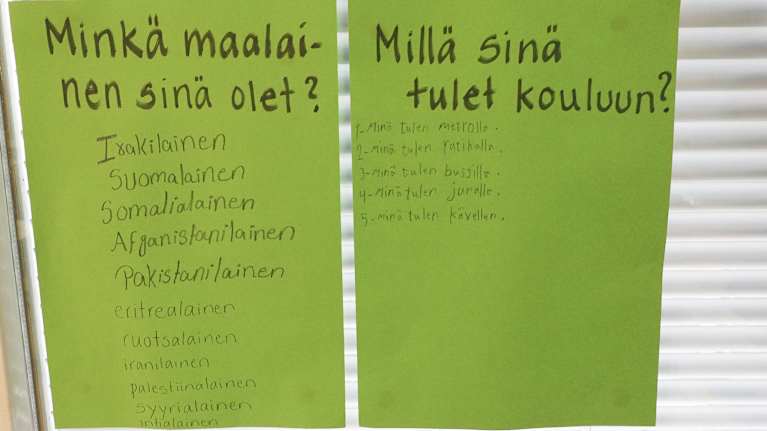 Minkä maalai-
nen sinä olet?
Irakilainen
Suomalainen
Somalialainen
Afganistanilainen
Pakistanilainen
eritrealainen
ruotsalainen
iranilainen
palestiinalainen
syyrialainen
intialainen
Millä sinä
tulet kouluun?
1-Minä tulen metrolla.
2-Minä tulen ratikalla.
3-Minä tulen bussilla.
4-Minä tulen junalla.
5-Minä tulen kävellen.